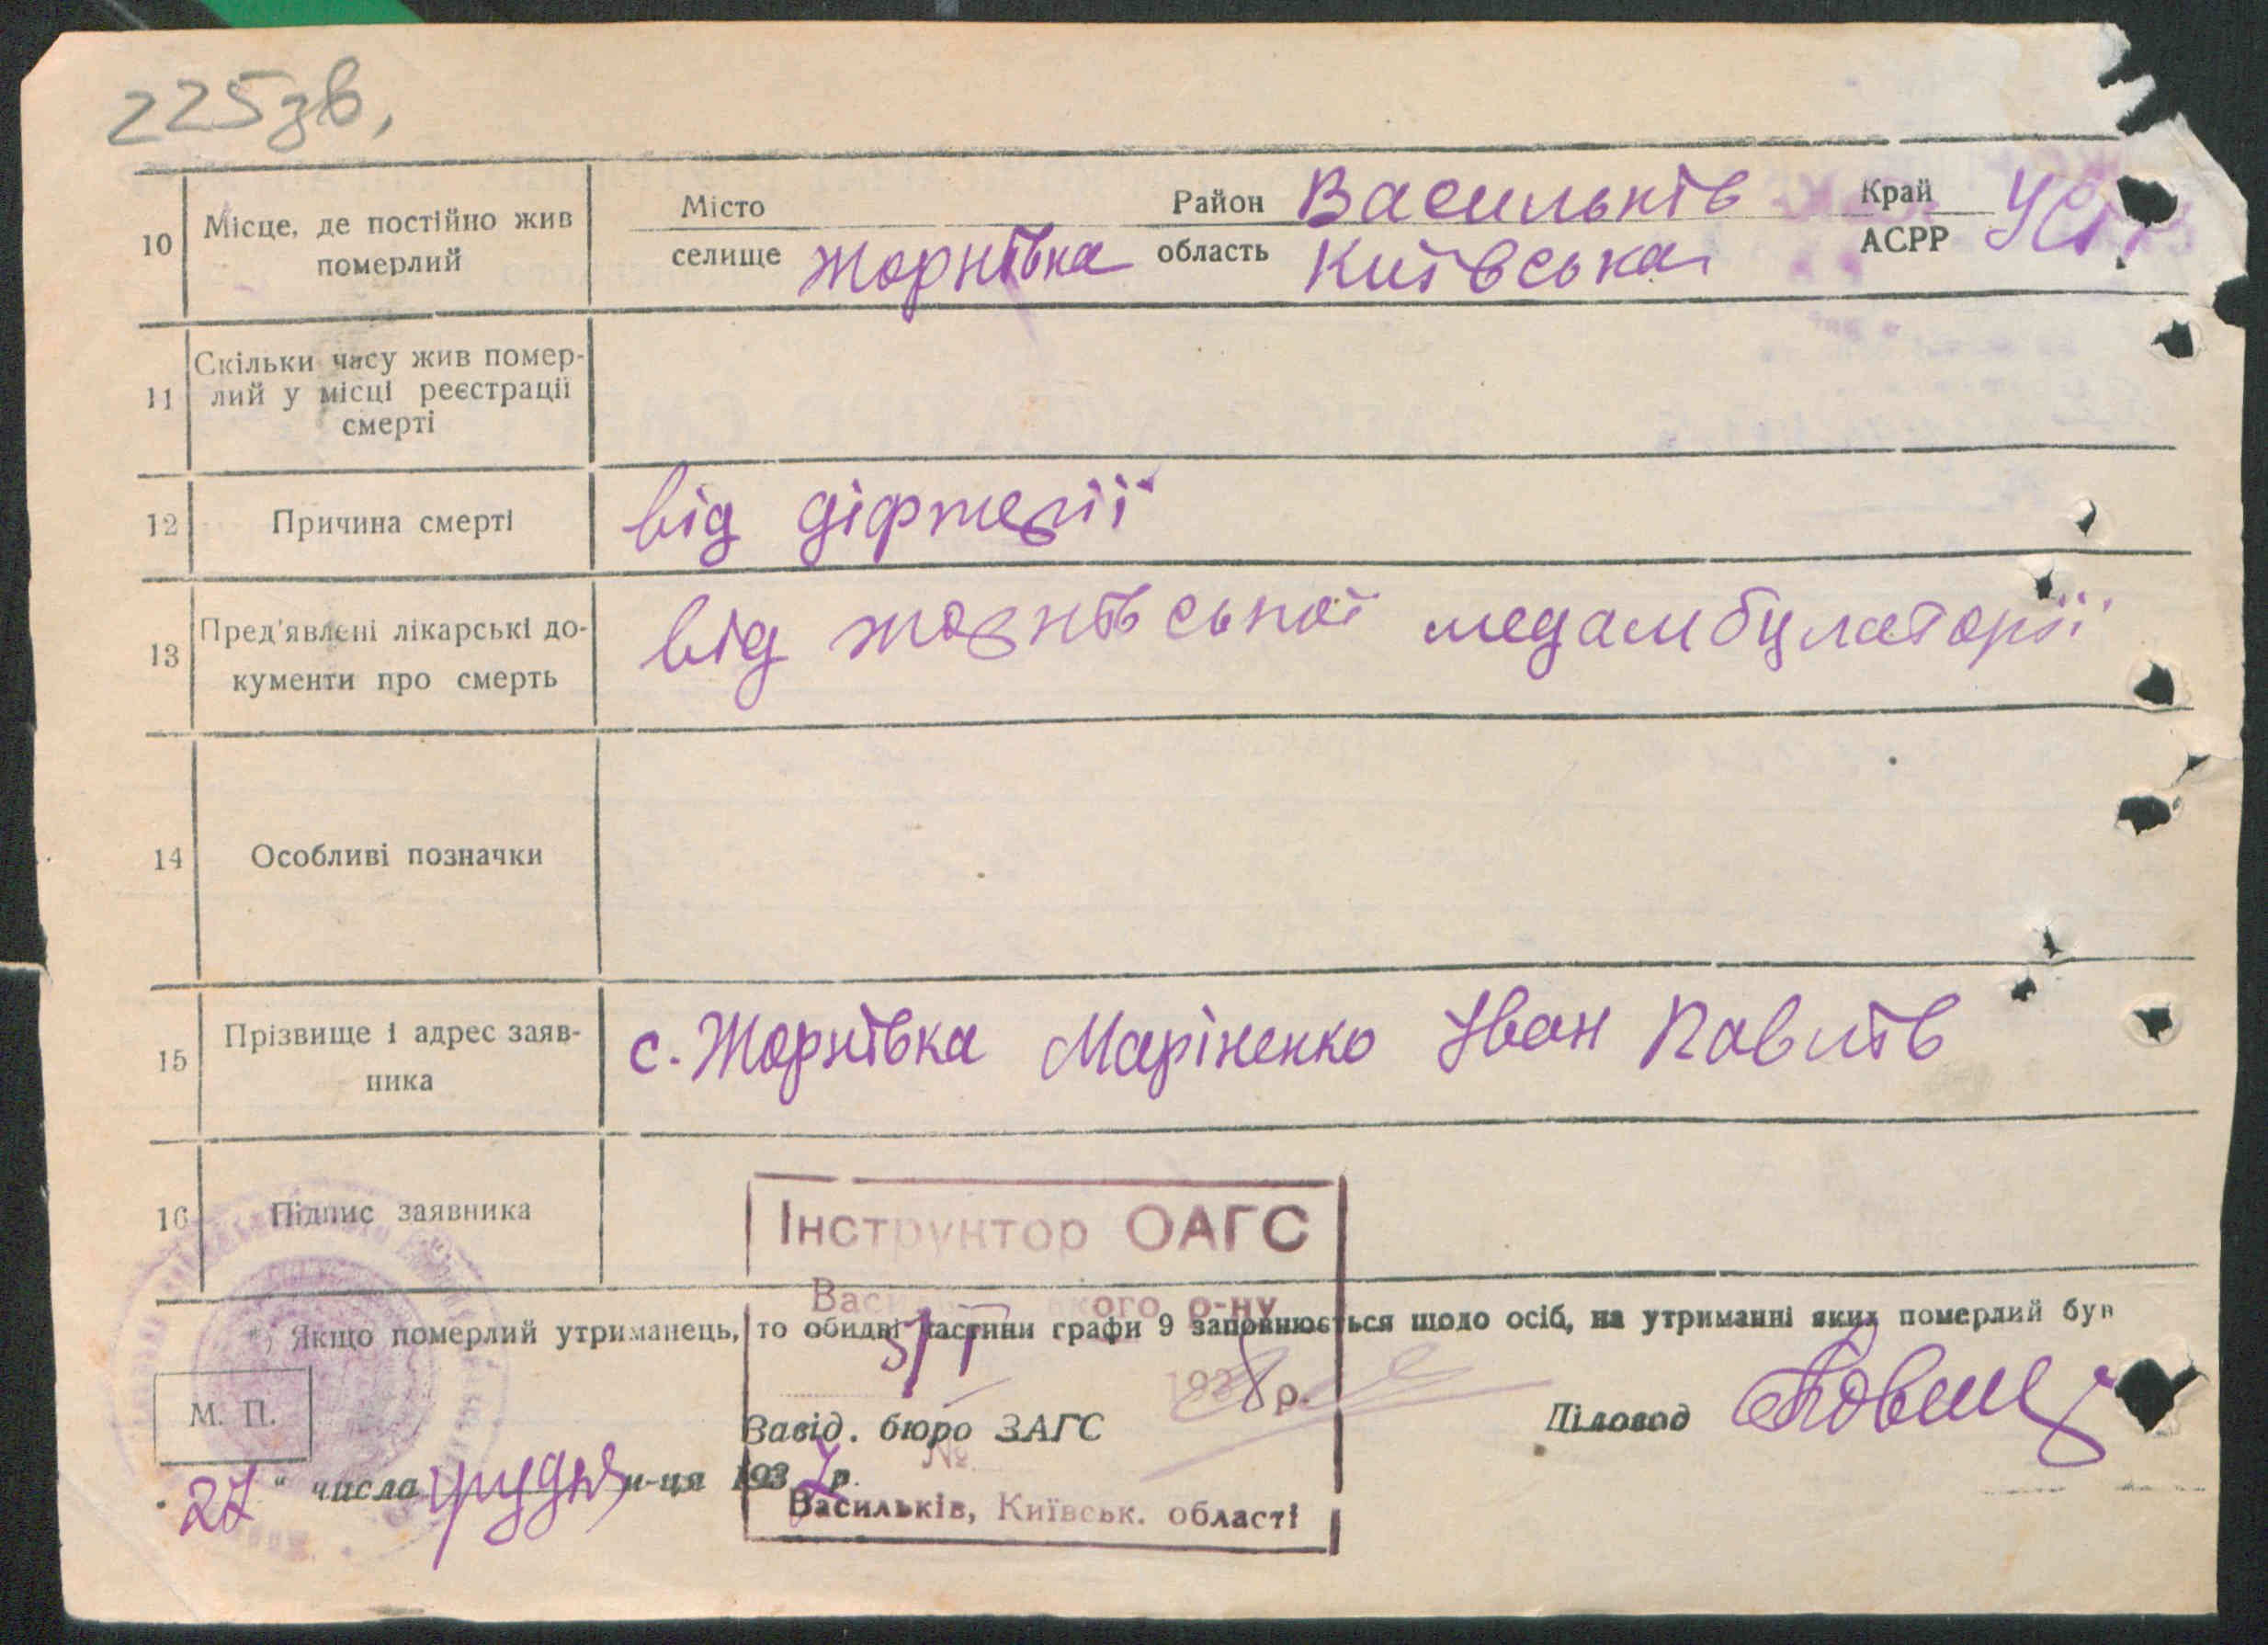 225зв,
10 Місце, де постійно жив померлий
Місто Район Васильків Край
селище Жорнівка область Київська АСРР
11 Скільки часу жив помер-
лий у місці реєстрації
смерті
12 Причина смерті від діфтерії
13 Пред'явлені лікарські до-
кументи про смерть
від жорнівської медамбулаторії
14 Особливі позначки
15 Прізвище і адрес заяв-
ника
с. Жорнівка Маріненко Іван Павлів
16 Підпис заявника
Інструктор ОАГС
р-ну
*) Якщо померлий утриманець, то обидві частини графи 9 заповнюється щодо осіб, на утриманні яких померлий був
3/I 1938 р.
М. П.
Завід. бюро ЗАГС Діловод
№
27 " числа грудня м-ця 1937 р.
Васильків, Київськ. області